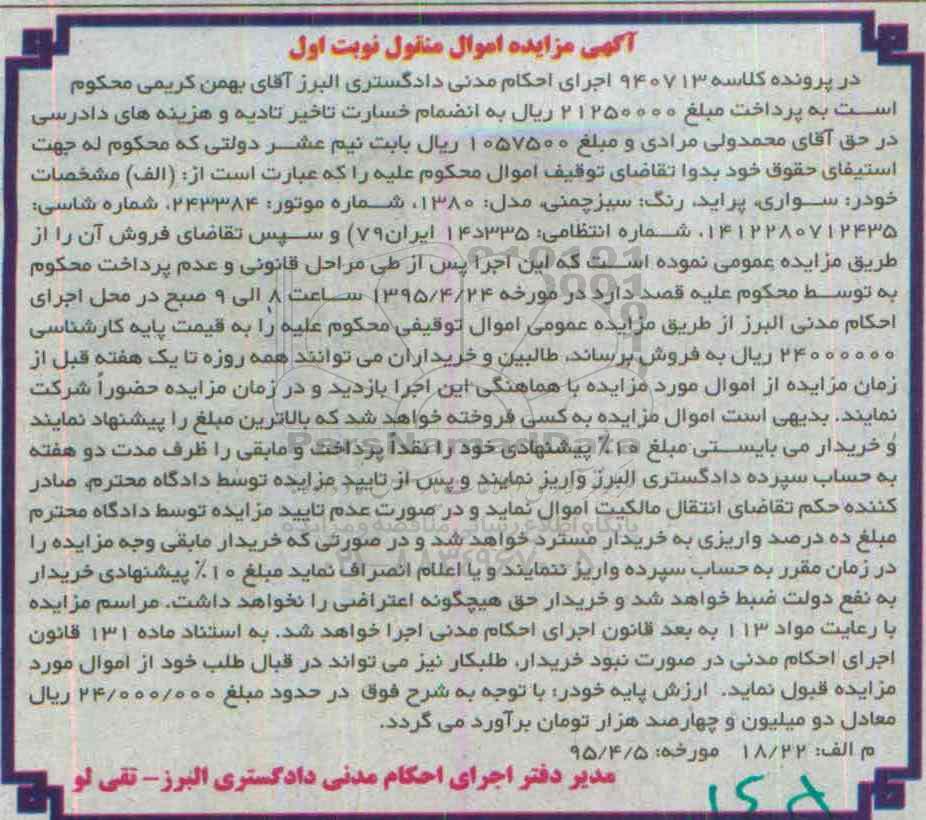 آگهی مزایده اموال منقول نوبت اول
در پرونده کلاسه ۹۴۰۷۱۳ اجرای احکام مدنی دادگستری البرز آقای بهمن کریمی محکوم
است به پرداخت مبلغ ۲۱۲۵۰۰۰۰ ریال به انضمام خسارت تاخیر تادیه و هزینه های دادرسی
در حق آقای محمدولی مرادی و مبلغ ۱۰۵۷۵۰۰ ریال بابت نیم عشر دولتی که محکوم له جهت
استیفای حقوق خود بدوا تقاضای توقیف اموال محکوم علیه را که عبارت است از: (الف) مشخصات
خودر: سواری، پراید، رنگ: سبزچمنی، مدل: ۱۳۸۰، شماره موتور: ۲۴۳۳۸۴، شماره شاسی:
۱۴۱۲۲۸۰۷۱۲۴۳۵، شماره انتظامی: ۳۳۵د۱۴ ایران۷۹) و سپس تقاضای فروش آن را از
طریق مزایده عمومی نموده است که این اجرا پس از طی مراحل قانونی و عدم پرداخت محکوم
به توسط محکوم علیه قصد دارد در مورخه ۱۳۹۵/۴/۲۴ ساعت ۸ الی ۹ صبح در محل اجرای
احکام مدنی البرز از طریق مزایده عمومی اموال توقیفی محکوم علیه را به قیمت پایه کارشناسی
۲۴۰۰۰۰۰۰ ریال به فروش برساند، طالبین و خریداران می توانند همه روزه تا یک هفته قبل از
زمان مزایده از اموال مورد مزایده با هماهنگی این اجرا بازدید و در زمان مزایده حضوراً شرکت
نمایند. بدیهی است اموال مزایده به کسی فروخته خواهد شد که بالاترین مبلغ را پیشنهاد نمایند
و خریدار می بایستی مبلغ ۱۰٪ پیشنهادی خود را نقداً پرداخت و مابقی را ظرف مدت دو هفته
به حساب سپرده دادگستری البرز واریز نمایند و پس از تایید مزایده توسط دادگاه محترم، صادر
کننده حکم تقاضای انتقال مالکیت اموال نماید و در صورت عدم تایید مزایده توسط دادگاه محترم
مبلغ ده درصد واریزی به خریدار مسترد خواهد شد و در صورتی که خریدار مابقی وجه مزایده را
در زمان مقرر به حساب سپرده واریز ننمایند و یا اعلام انصراف نماید مبلغ ۱۰٪ پیشنهادی خریدار
به نفع دولت ضبط خواهد شد و خریدار حق هیچگونه اعتراضی را نخواهد داشت. مراسم مزایده
با رعایت مواد ۱۱۳ به بعد قانون اجرای احکام مدنی اجرا خواهد شد. به استناد ماده ۱۳۱ قانون
اجرای احکام مدنی در صورت نبود خریدار، طلبکار نیز می تواند در قبال طلب خود از اموال مورد
مزایده قبول نماید. ارزش پایه خودر: با توجه به شرح فوق در حدود مبلغ ۲۴/۰۰۰/۰۰۰ ریال
معادل دو میلیون و چهارصد هزار تومان برآورد می گردد.
م الف: ۱۸/۲۲ مورخه: ۹۵/۴/۵
مدیر دفتر اجرای احکام مدنی دادگستری البرز- تقی لو
ParsNamadData
پایگاه اطلاع رسانی مناقصه و مزایده